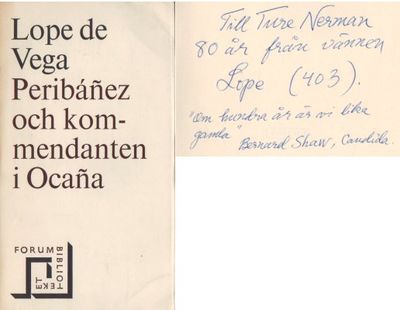 Lope de
Vega
Peribáñez
och kom-
mendanten
i Ocaña
FORUM
BIBLIOTEKET
Till Ture Nerman
80 år från vännen
Lope (403).
"Om hundra år är vi lika
gamla"
Bernard Shaw, Candida.